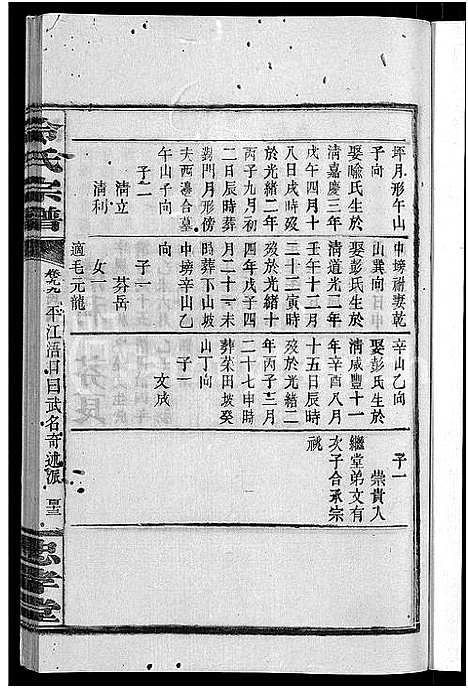 坪月形午山
子向
娶喻氏生於
清嘉慶三年
戊午四月十
八日戌時歿
於光緒二年
丙子九月初
二日辰時葬
對門月形傍
大西邊合墓
午山子向
子二
清立
清利
中塝祔妻乾
山巽向
娶彭氏生於
清道光二年
壬午十二月
三十二寅時
歿於光緒十
四年戊子四
月二十一未
時葬下山坡
中塝辛山乙
向
子一
芬岳
女一
適毛元龍
辛山乙向
娶彭氏生於
清咸豐十一
年辛酉八月
十五日辰時
歿於光緒二
年丙子三月
二十七申時
葬菜田坡癸
山丁向
子一
文成
子一
崇貴入
繼堂弟文有
次子合承宗
祧
余氏宗譜
卷九 平江浯口武名奇述派
忠孝堂